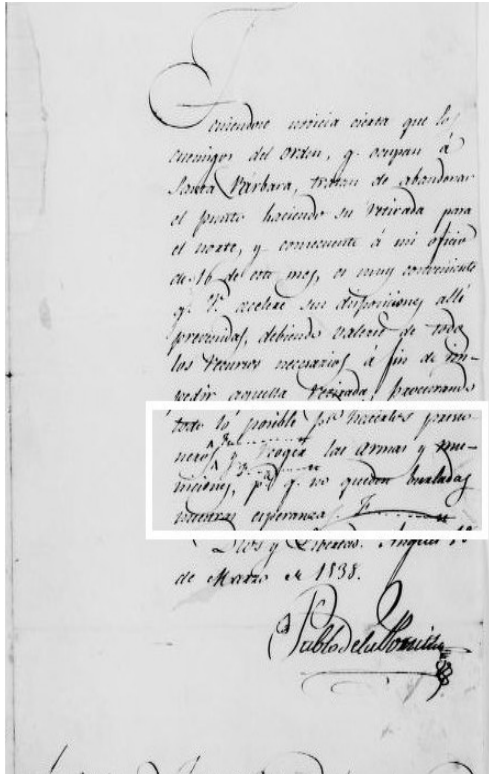 Teniendose noticia cierta que los
enemigos del orden, q. ocupan á
Santa Várbara, tratan de abandonar
el punto haciendo su retirada para
el norte, y consecuente á mi oficio
de 16 de este mes, es muy conveniente
q. V. acelere sus disposiciones allí
prevenidas, debiendo valerse de todos
los recursos necesarios á fin de im-
pedir aquella retirada, procurando
todo lo posible pr. hacerles pricio-
neros, y recoger las armas y mu-
niciones, pa. q. no queden burladas
nuestras esperanzas.
Dios y Libertad. Angeles
de Marzo de 1838.
Pablo de la